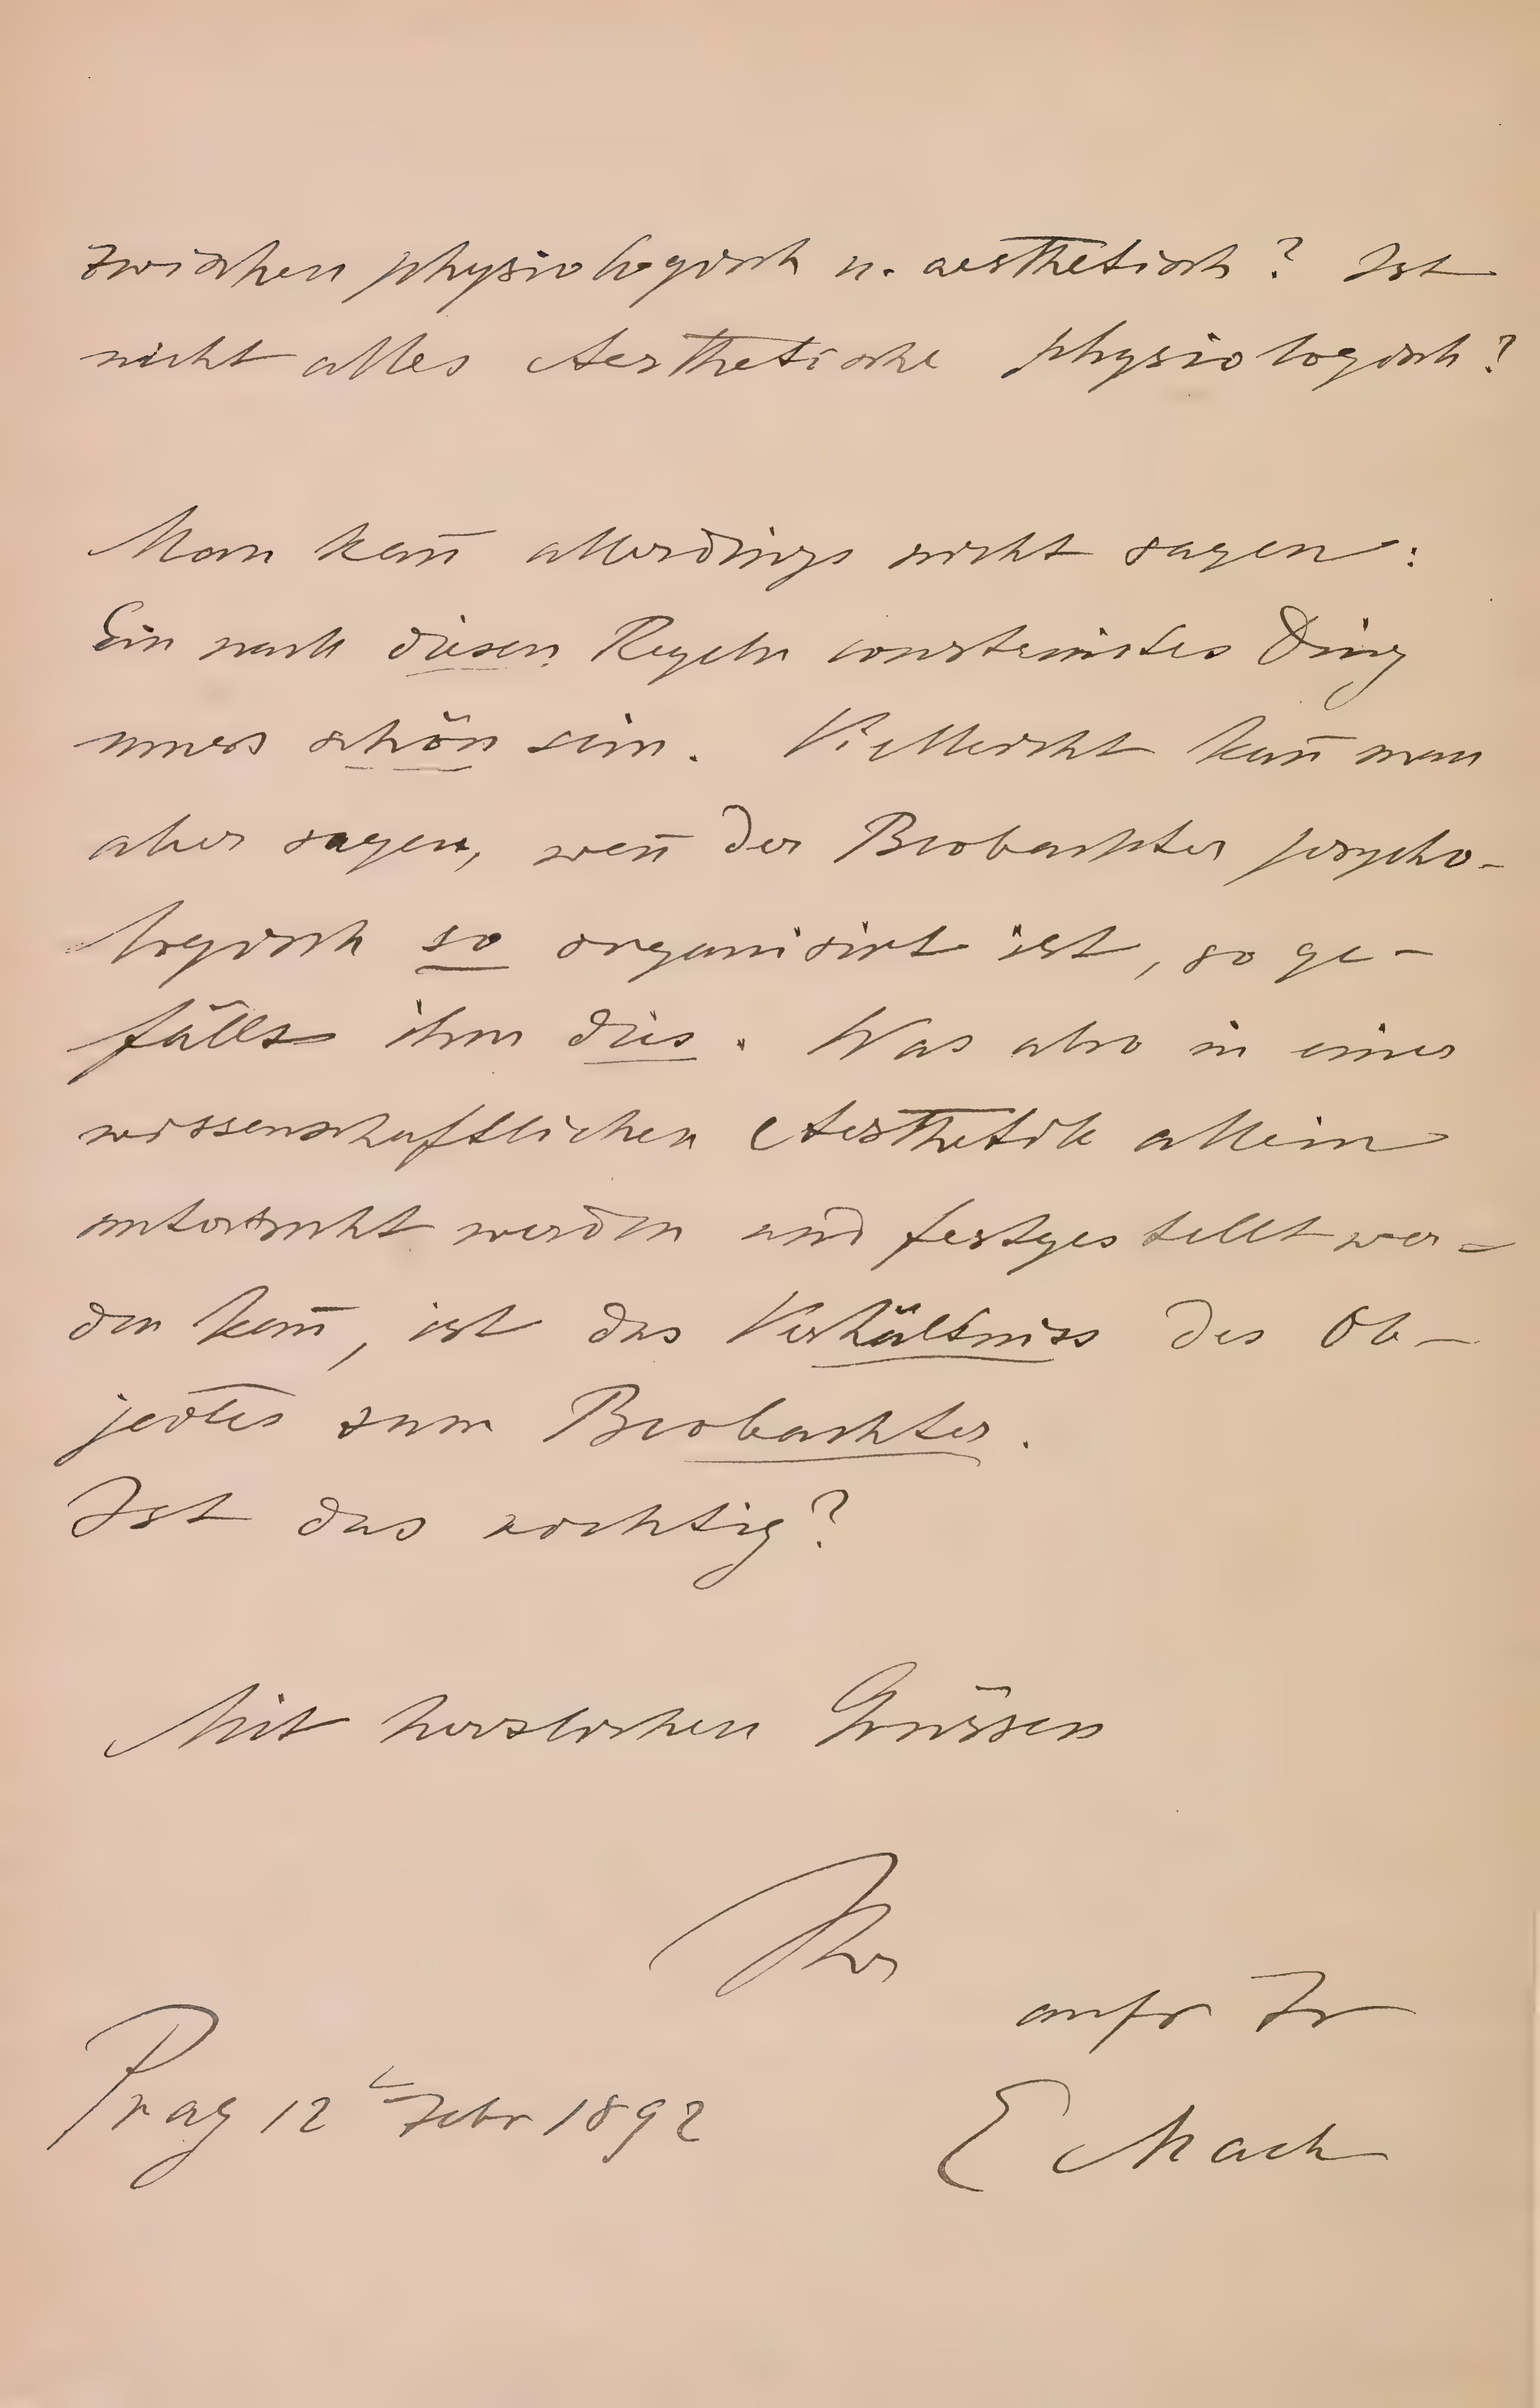 zwischen physiologisch u. aesthetisch? Ist
nicht alles Aesthetische physiologisch?
Man kan̄ allerdings nicht sagen:
Ein nach diesen Regeln construirtes Ding
muss schön sein. Vielleicht kan̄ man
aber sagen, wen̄ der Beobachter psycho-
logisch so organisirt ist, so ge-
fällt ihm dies. Was also in einer
wissenschaftlichen Aesthetik allein
untersucht werden und festgestellt wer=
den kan̄, ist das Verhältniss des Ob-
jectes zum Beobachter.
Ist das richtig?
Mit herzlichen Grüssen
Ihr
aufr Fr
E Mach
Prag 12 Febr 1892